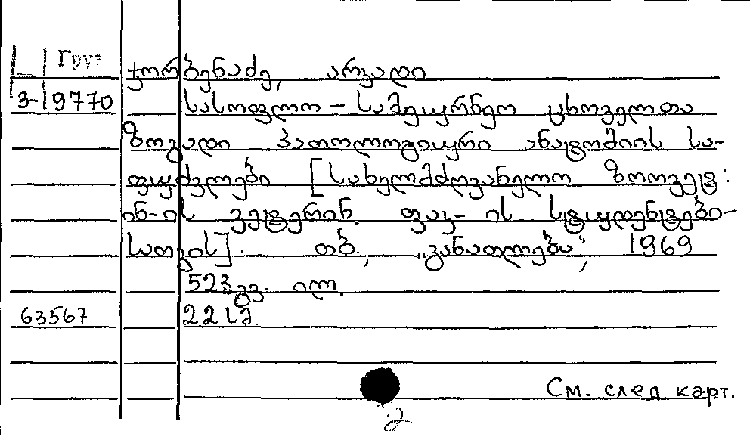 Груз
ჯორბენაძე, არკადი
3-19770 სასოფლო-სამეურნეო ცხოველთა
ზოგადი პათოლოგიური ანატომიის სა-
ფუძვლები [სახელმძღვანელო ზოოვეტ.
ინ-ის ვეტერინ. ფაკ-ის სტუდენტები-
სათვის]. თბ., „განათლება“, 1969
523 გვ. ილ.
63567 22 სმ
См. след карт.
2